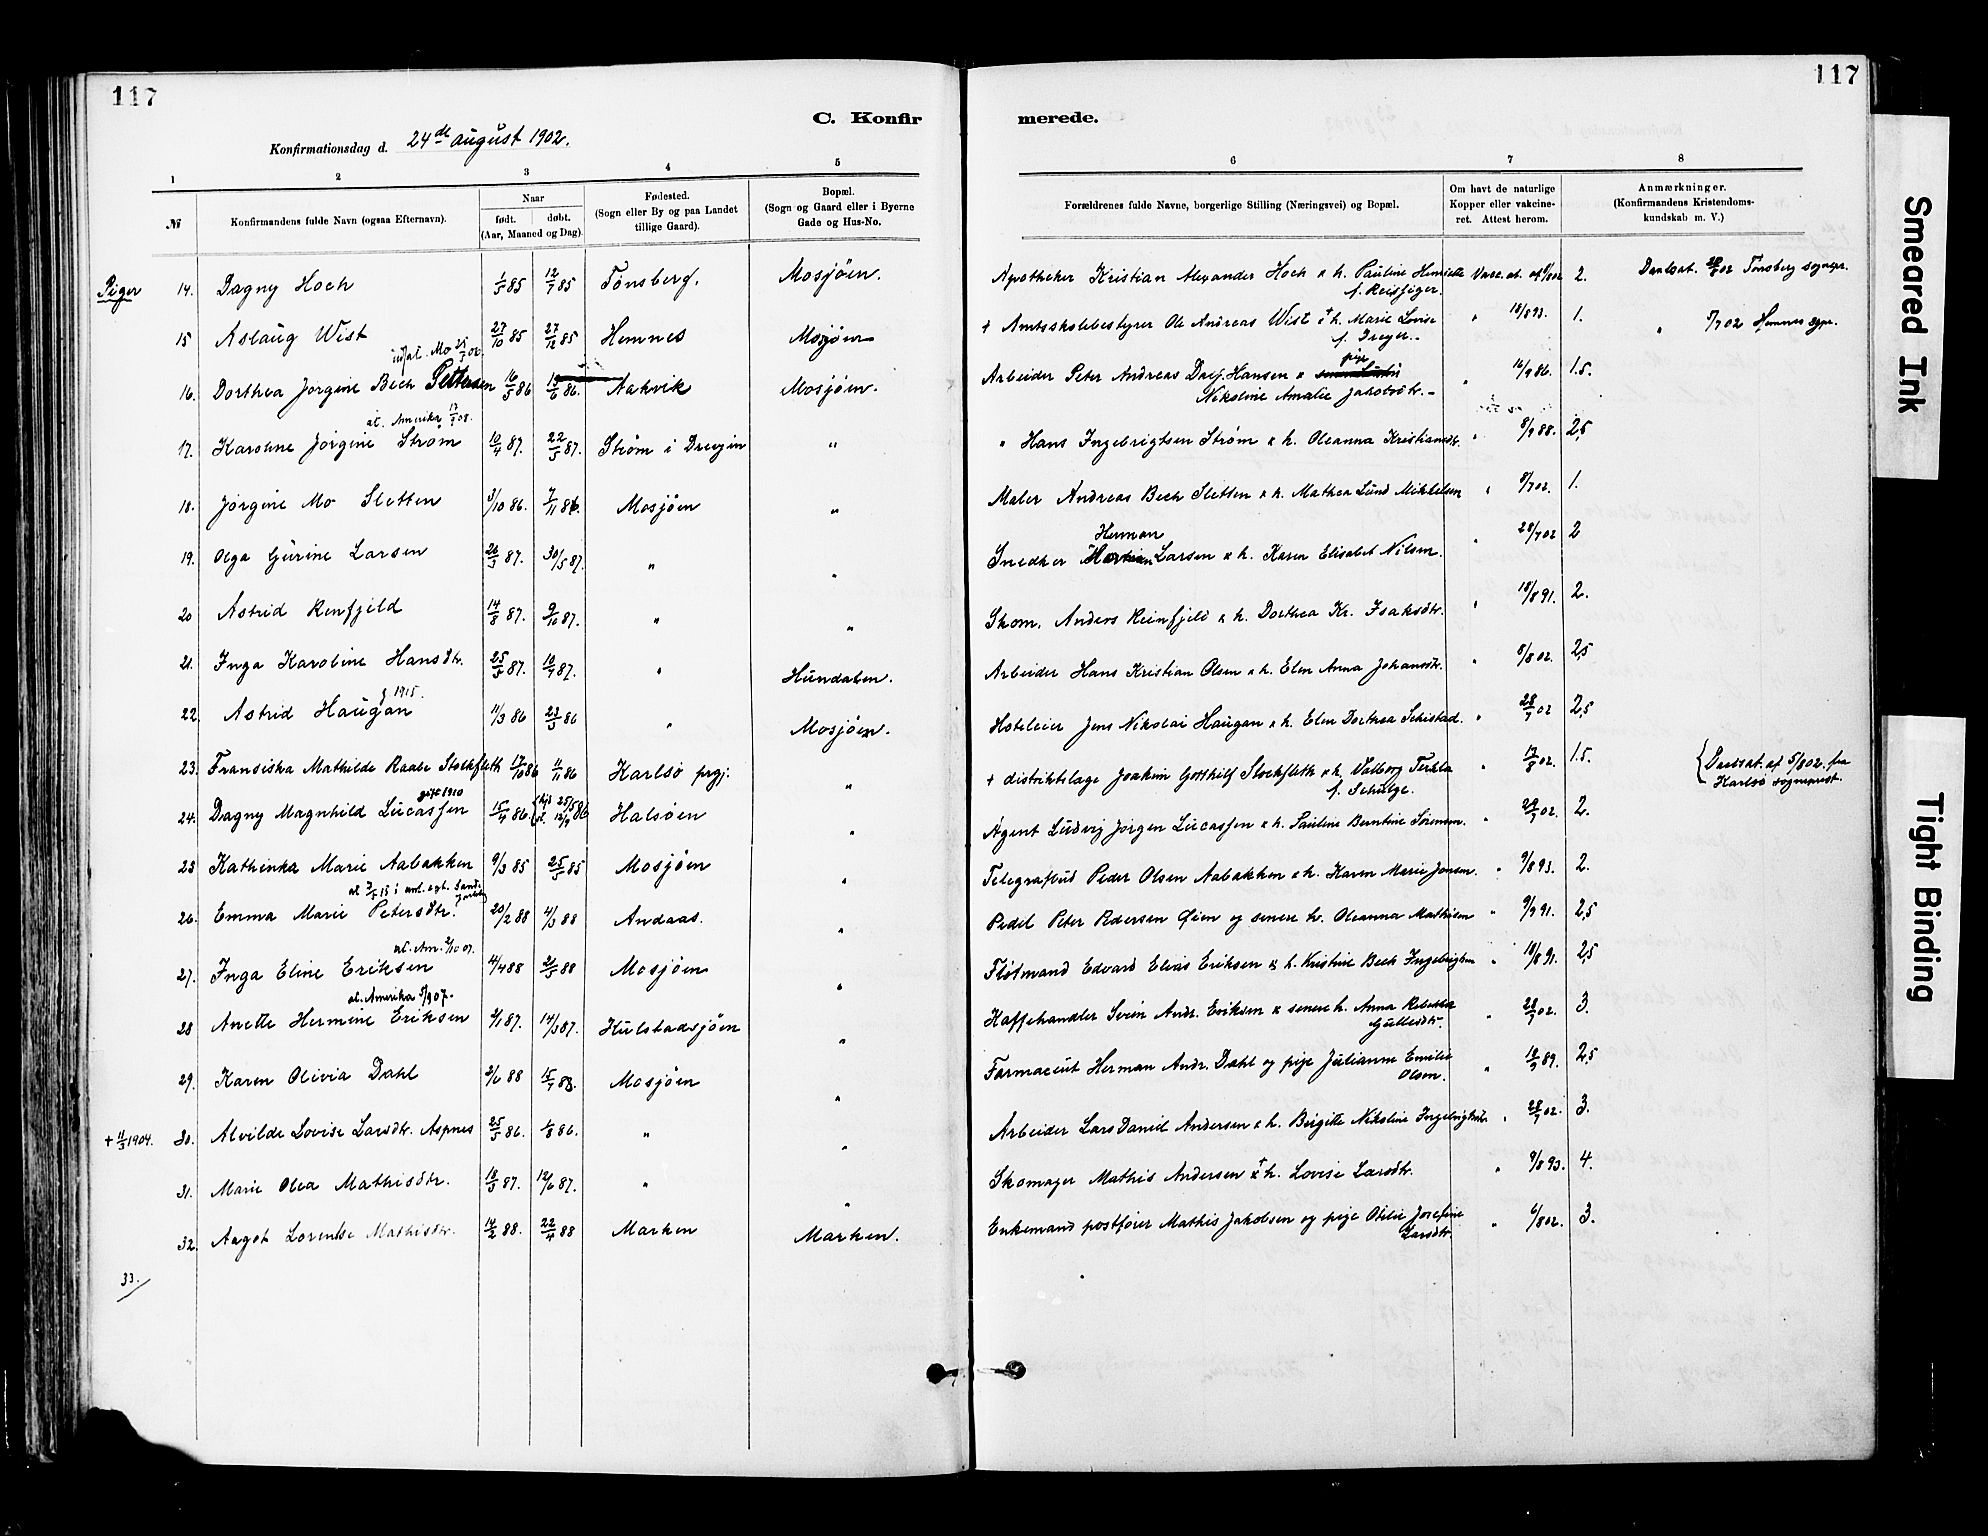 117
117
C. Konfir
merede.
Konfirmationsdag d. 24de august 1902.
1 2 3 4 5 6 7 8
№ Konfirmandens fulde Navn (ogsaa Efternavn). Naar født. døbt. (Aar, Maaned og Dag). Fødested. (Sogn eller By og paa Landet tillige Gaard). Bopæl. (Sogn og Gaard eller i Byerne Gade og Hus-No.
Forældrenes fulde Navne, borgerlige Stilling (Næringsvei) og Bopæl. Om havt de naturlige Kopper eller vakcineret. Attest herom. Anmærkninger. (Konfirmandens Kristendomskundskab m. V.)
Piger 14. Dagny Hoch 1/5 85 12/7 85 Tønsberg. Mosjøen. Apotheker Kristian Alexander Hoch & h. Pauline Henriette f. Reissiger. Vacc. at. af 2.
Daabsat. 02 Tønsberg sognepr.
15 Aslaug Wist 27/10 85 27/12 85 Hemnes Mosjøen + Amtsskolebestyrer Ole Andreas Wist & h. Marie Lovise f. Dreyer. " 18/8 93. 1. " 5/7 02 Hemnes sgpr.
16. Dorthea Jørgine Bech Pettersen 16/5 86 13/6 86. Aakvik Mosjøen. Arbeider Peter Andreas Drej. Hansen & pige Nikoline Amalie Jakobsdtr. " 16/9 86. 1.5.
at. Amerika 08.
17. Karoline Jørgine Strøm 10/4 87. 22/5 87. Strøm i Drevjen " " Hans Ingebrigtsen Strøm & h. Oleanna Kristiansdtr. " 8/9 88. 2,5
18. Jørgine Mo Sletten 3/10 86. 7/11 86. Mosjøen " Maler Andreas Bech Sletten & h. Mathea Lund Mikkelsen " 8/7 02. 1.
19. Olga Gurine Larsen 20/3 87. 30/5 87. " " Snedker Herman Larsen & h. Karen Elisabet Nilsen. " 28/7 02 2
20 Astrid Renfjeld 14/8 87. 9/10 87. " " Skom. Anders Reinfjeld & h. Dorthea Kr. Isaksdtr. " 18/8 91. 2.
21. Inga Karoline Hansdtr. 25/5 87. 10/7 87. " Hundaten. Arbeider Hans Kristian Olsen & h. Elen Anna Johansdtr. " 8/8 02. 2,5
1915.
22. Astrid Haugan 11/3 86 23/5 86 " Mosjøen. Hoteleier Jens Nikolai Haugan & h. Elen Dorthea Schistad. " 28/7 02 2,5
23. Fransiska Mathilde Raabe Stockfleth 17/10 86 11/11 86 Karlsø prgj. " + distriktslæge Joakim Gotthilf Stockfleth & h. Valborg Tekla f. Schulze. " 17/8 02. 1.5. Daabsat. af 5/8 02. fra Karlsø sogneprest.
gift 1910
24. Dagny Magnhild Lucassen 15/4 86. hjd 25/5 86 Halsøen " Agent Ludvig Jørgen Lucassen & h. Pauline Berntine Sørensen. " 29/7 02. 2.
25 Kathinka Marie Aabakken 9/3 85 25/5 85 Mosjøen " Telegrafbud Peder Olsen Aabakken & h. Karen Marie Jonsen. " 9/8 93. 2.
26. Emma Marie Petersdtr. 20/2 88 4/3 88 Andaas. " Pedel Peter Pedersen Øien og senere h. Oleanna Mathisen " 9/9 91. 2,5
at. Am. 2/10 07.
27. Inga Eline Eriksen 4/4 88 21/5 88 Mosjøen " Fløtmand Edvard Elias Eriksen & h. Kristine Bech Ingebrigtsen " 18/8 91. 2,5
at. Amerika 5/9 07.
28 Anette Hermine Eriksen 2/1 87. 14/3 87. Kulstadsjøen " Kaffehandler Svein Andr. Eriksen & senere h. Anna Rebekka Gullesdtr. " 28/7 02. 3.
29. Karen Olivia Dahl 2/6 88 15/7 88. Mosjøen " Farmaceut Herman Andr. Dahl og pige Julianne Emilie Olsen. " 12/9 89. 2,5
+ 11/3 1904. 30. Alvilde Lovise Larsdtr. Aspnes 25/5 86. 1/8 86. " " Arbeider Lars Daniel Andersen & h. Birgitte Nikoline Ingebrigtsdtr. " 28/7 02. 3.
31. Marie Olea Mathisdtr. 18/3 87. 12/6 87. " " Skomager Mathis Andersen & h. Lovise Larsdtr. " 9/8 93. 4.
32. Aagot Lorentse Mathisdtr. 14/2 88. 22/4 88 Marken Marken. Enkemand postfører Mathis Jakobsen og pige Otilie Josefine Larsdtr. " 6/8 02. 3.
33.
Smeared Ink
Tight Binding